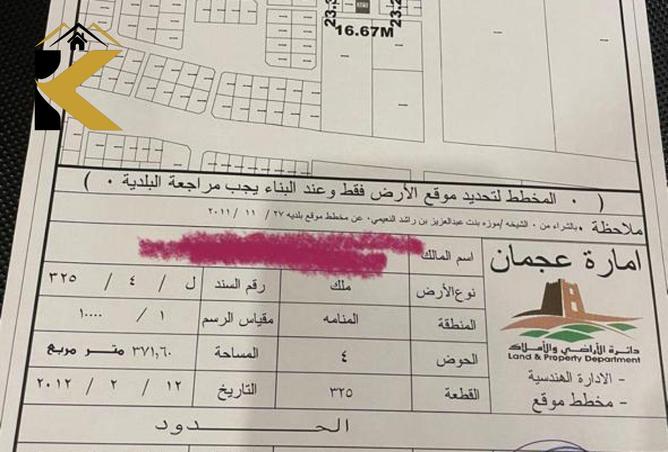 16.67M
( ٠ المخطط لتحديد موقع الأرض فقط وعند البناء يجب مراجعة البلدية ٠ )
ملاحظة ٠ بالشراء من ٠ الشيخه /موزه بنت عبدالعزيز بن راشد النعيمي٠ عن مخطط موقع بلديه ٢٧ / ١١ / ٢٠١١
امارة عجمان
دائرة الأراضي والأملاك
Land & Property Department
- الادارة الهندسية
- مخطط موقع
اسم المالك
نوع الأرض ملك رقم السند ل / ٤ / ٣٢٥
المنطقة المنامه مقياس الرسم ١ / ١٠٠٠
الحوض ٤ المساحة ٣٧١,٦٠ متر مربع
القطعة ٣٢٥ التاريخ ١٢ / ٢ / ٢٠١٢
الحـــدود